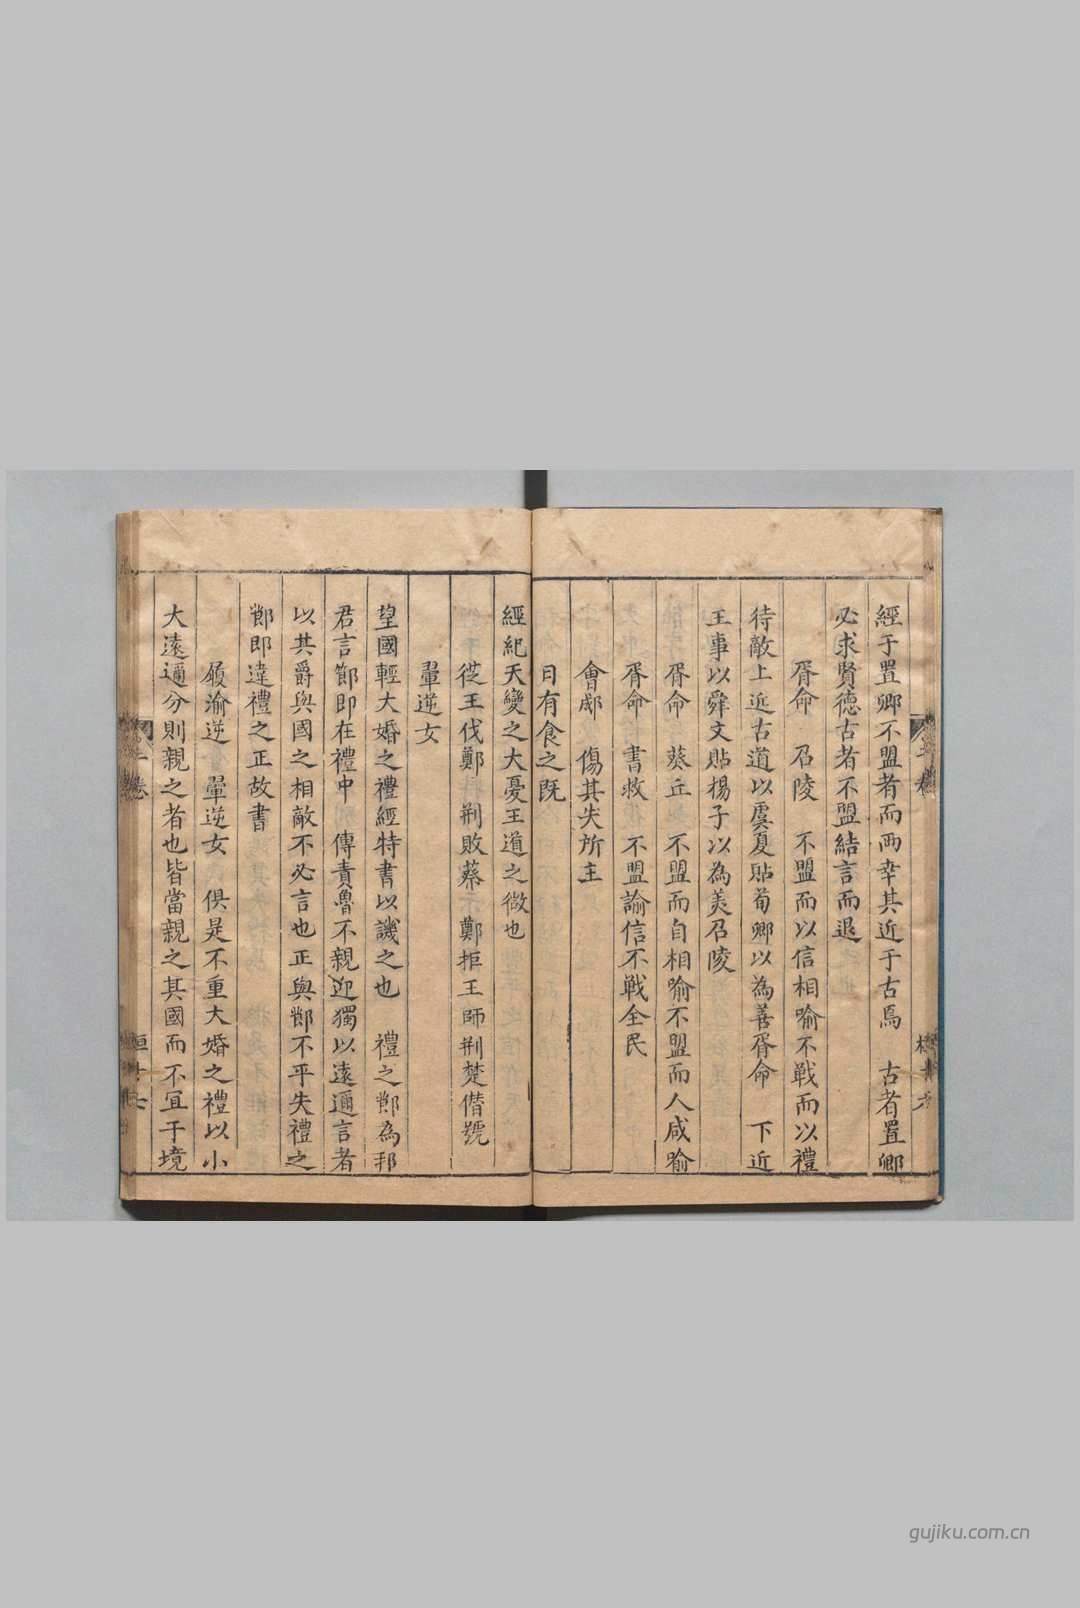 經于置卿不盟者而兩幸其近于古焉　古者置卿
必求賢德古者不盟結言而退
胥命　召陵　不盟而以信相喻不戰而以禮
待敵上近古道以虞夏貼荀卿以為善胥命　下近
王事以舜文貼揚子以為美召陵
胥命　葵丘　不盟而自相喻不盟而人咸喻
胥命　書救　不盟諭信不戰全民
會郕　傷其失所主
日有食之既
經紀天變之大憂王道之微也
從王伐鄭　荆敗蔡　鄭拒王師荆楚僭號
翬逆女
望國輕大婚之禮經特書以譏之也　禮之節為邦
君言節即在禮中　傳責魯不親迎獨以遠邇言者
以其爵與國之相敵不必言也正與節不乎失禮之
節即違禮之正故書
履渝逆　翬逆女　俱是不重大婚之禮以小
大遠邇分則親之者也皆當親之其國而不宜于境
桓
gujiku.com.cn